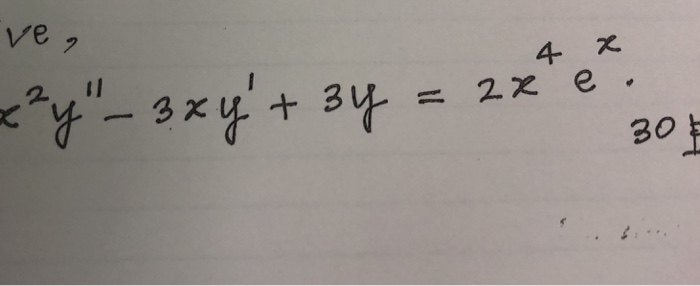 ve,
x²y'' - 3xy' + 3y = 2x⁴eˣ.
30